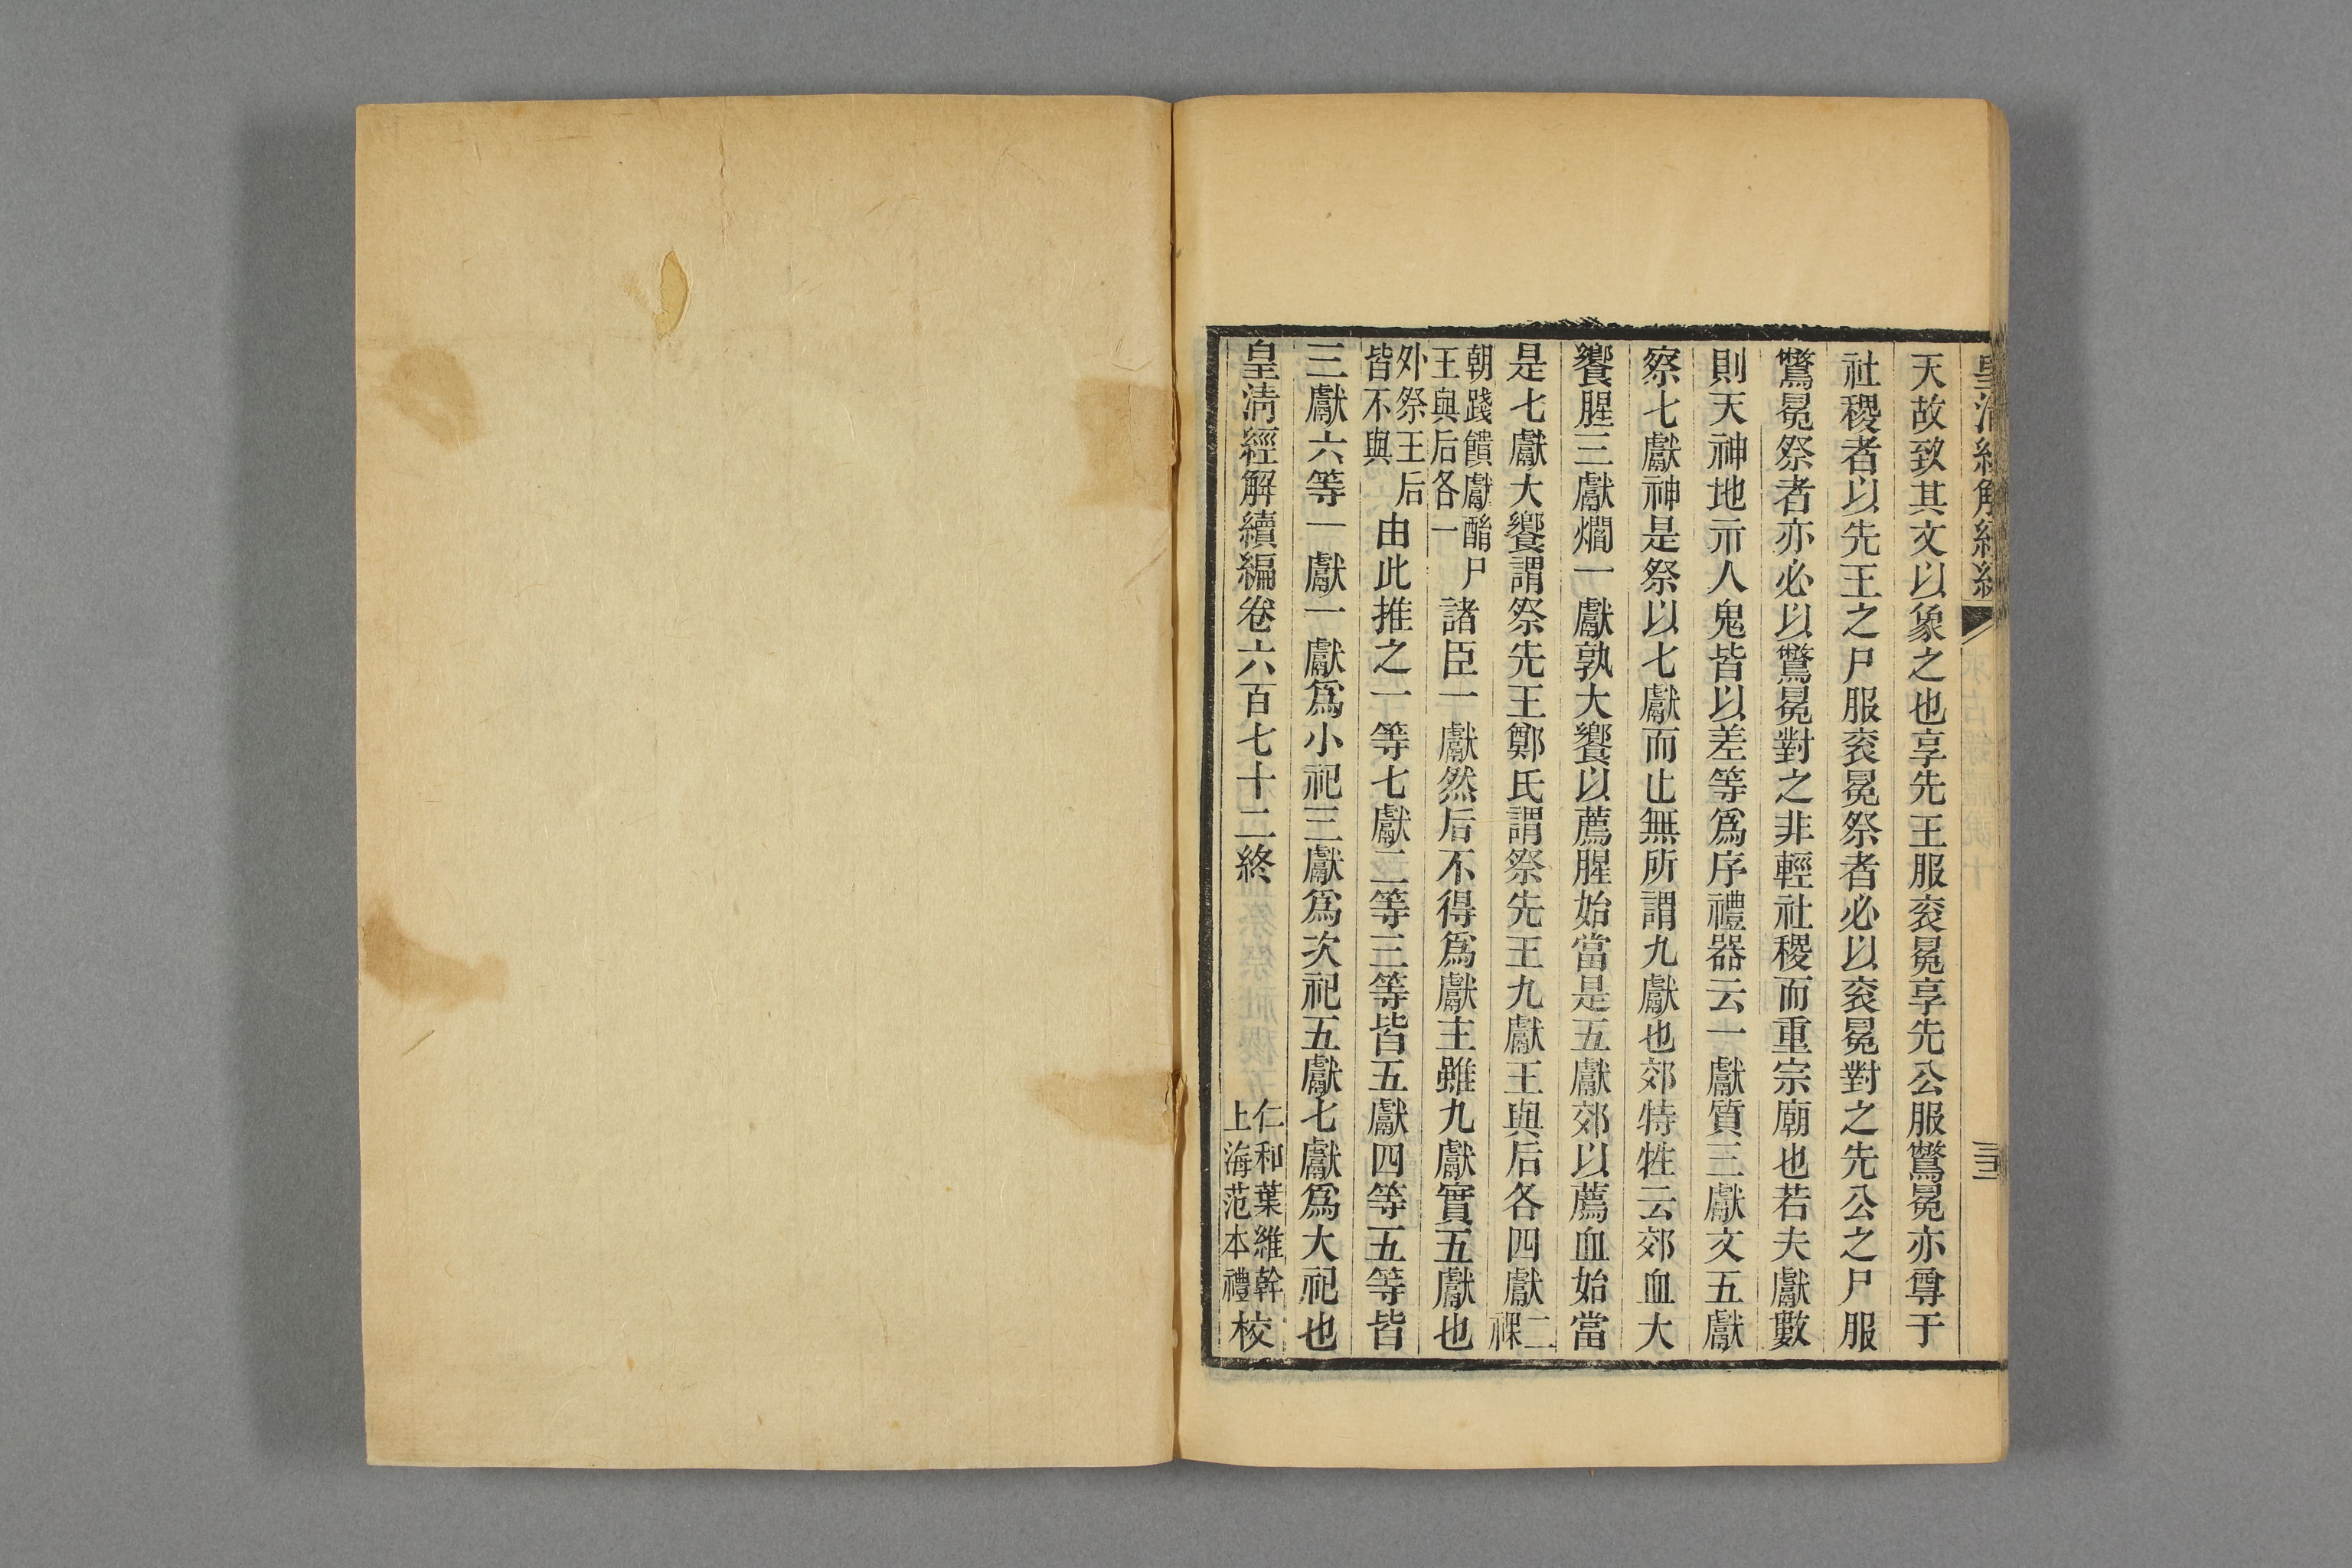 天故致其文以象之也享先王服袞冕享先公服鷩冕亦尊于
社稷者以先王之尸服袞冕祭者必以袞冕對之先公之尸服
鷩冕祭者亦必以鷩冕對之非輕社稷而重宗廟也若夫獻數
則天神地示人鬼皆以差等爲序禮器云一獻質三獻文五獻
察七獻神是祭以七獻而止無所謂九獻也郊特牲云郊血大
饗腥三獻爓一獻孰大饗以薦腥始當是五獻郊以薦血始當
是七獻大饗謂祭先王鄭氏謂祭先王九獻王與后各四獻二祼
朝踐饋獻酳尸王與后各一諸臣一獻然后不得爲獻主雖九獻實五獻也
外祭王后皆不與由此推之一等七獻二等三等皆五獻四等五等皆
三獻六等一獻一獻爲小祀三獻爲次祀五獻七獻爲大祀也
皇清經解續編卷六百七十二終
仁和葉維幹
上海范本禮校